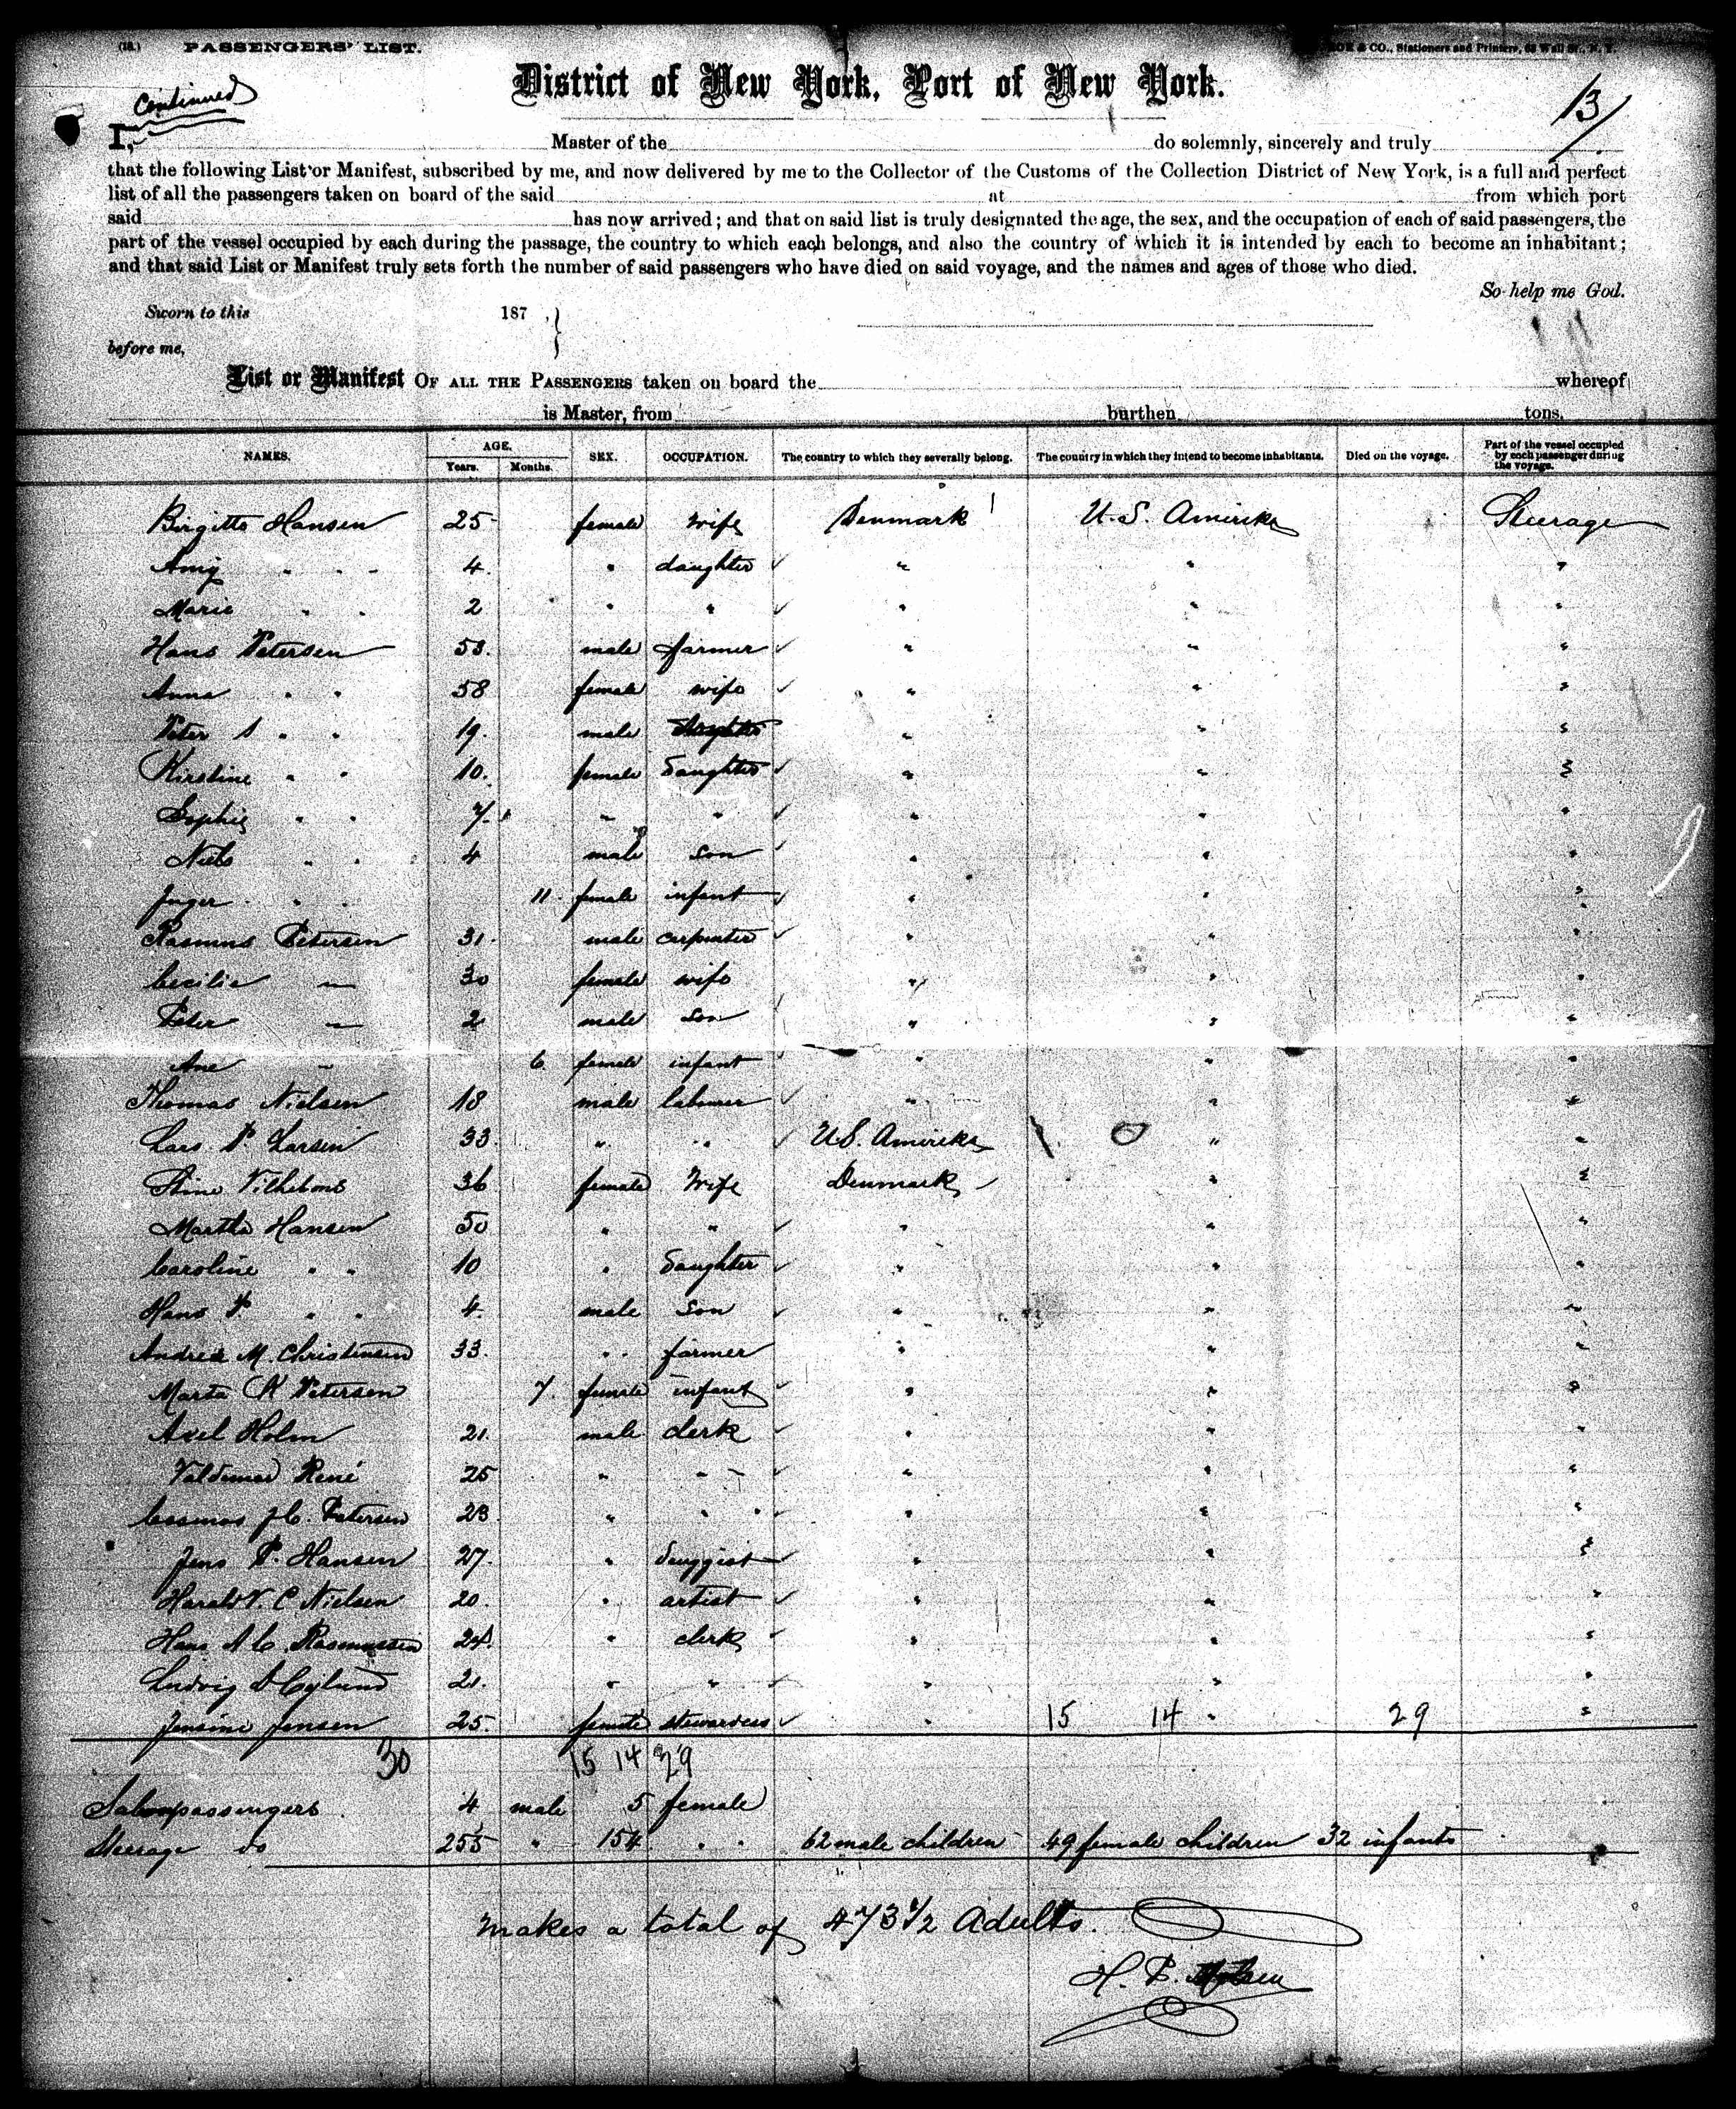 (18.) PASSENGERS' LIST. & CO., Stationers and Printers, 63 Wall St., N. Y.
District of New York, Port of New York.
Continued 13
I, Master of the do solemnly, sincerely and truly
that the following List or Manifest, subscribed by me, and now delivered by me to the Collector of the Customs of the Collection District of New York, is a full and perfect
list of all the passengers taken on board of the said at from which port
said has now arrived; and that on said list is truly designated the age, the sex, and the occupation of each of said passengers, the
part of the vessel occupied by each during the passage, the country to which each belongs, and also the country of which it is intended by each to become an inhabitant;
and that said List or Manifest truly sets forth the number of said passengers who have died on said voyage, and the names and ages of those who died.
So help me God.
Sworn to this 187 ,
before me,
List or Manifest OF ALL THE PASSENGERS taken on board the whereof
is Master, from burthen tons.
NAMES. AGE. Years. Months. SEX. OCCUPATION. The country to which they severally belong. The country in which they intend to become inhabitants. Died on the voyage. Part of the vessel occupied by each passenger during the voyage.
Birgitte Hansen 25 female wife Denmark U.S. Amerika Steerage
4 " daughter " " "
Marie " " 2 " " " " "
Hans Petersen 53 male farmer " " "
Anna " " 58 female wife " " "
Peter " " 19 male " " "
Kirstine " " 10 female daughter " " "
Sophie " " 7 " " " " "
Niels " " 4 male son " " "
Inger " " 11 female infant " " "
Rasmus Petersen 31 male carpenter " " "
Cecilie — 30 female wife " " "
Peter — 2 male son " " "
Ane — 6 female infant " " "
Thomas Nielsen 18 male labourer " " "
Lars P. Larsen 33 " " U.S. Amerika " "
Stine 36 female wife Denmark " "
Martha Hansen 50 " " " " "
Caroline " " 10 " daughter " " "
Hans P. " " 4 male son " " "
Andreas M. Christensen 33 " farmer " " "
Marta K Petersen 7 female infant " " "
Axel Holm 21 male clerk " " "
Valdemar René 25 " " " " "
Petersen 23 " " " " "
Jens P. Hansen 27 " druggist " " "
Harald V. C. Nielsen 20 " artist " " "
Hans Rasmussen 24 " clerk " " "
Ludvig 21 " " " " "
Jensine Jensen 25 female stewardess " 15 14 " 29 "
30 15 14 29
Salonpassengers 4 male 5 female
Steerage do 255 " 154 " " 62 male children 49 female children 32 infants
makes a total of 473 1/2 Adults.
H. P.